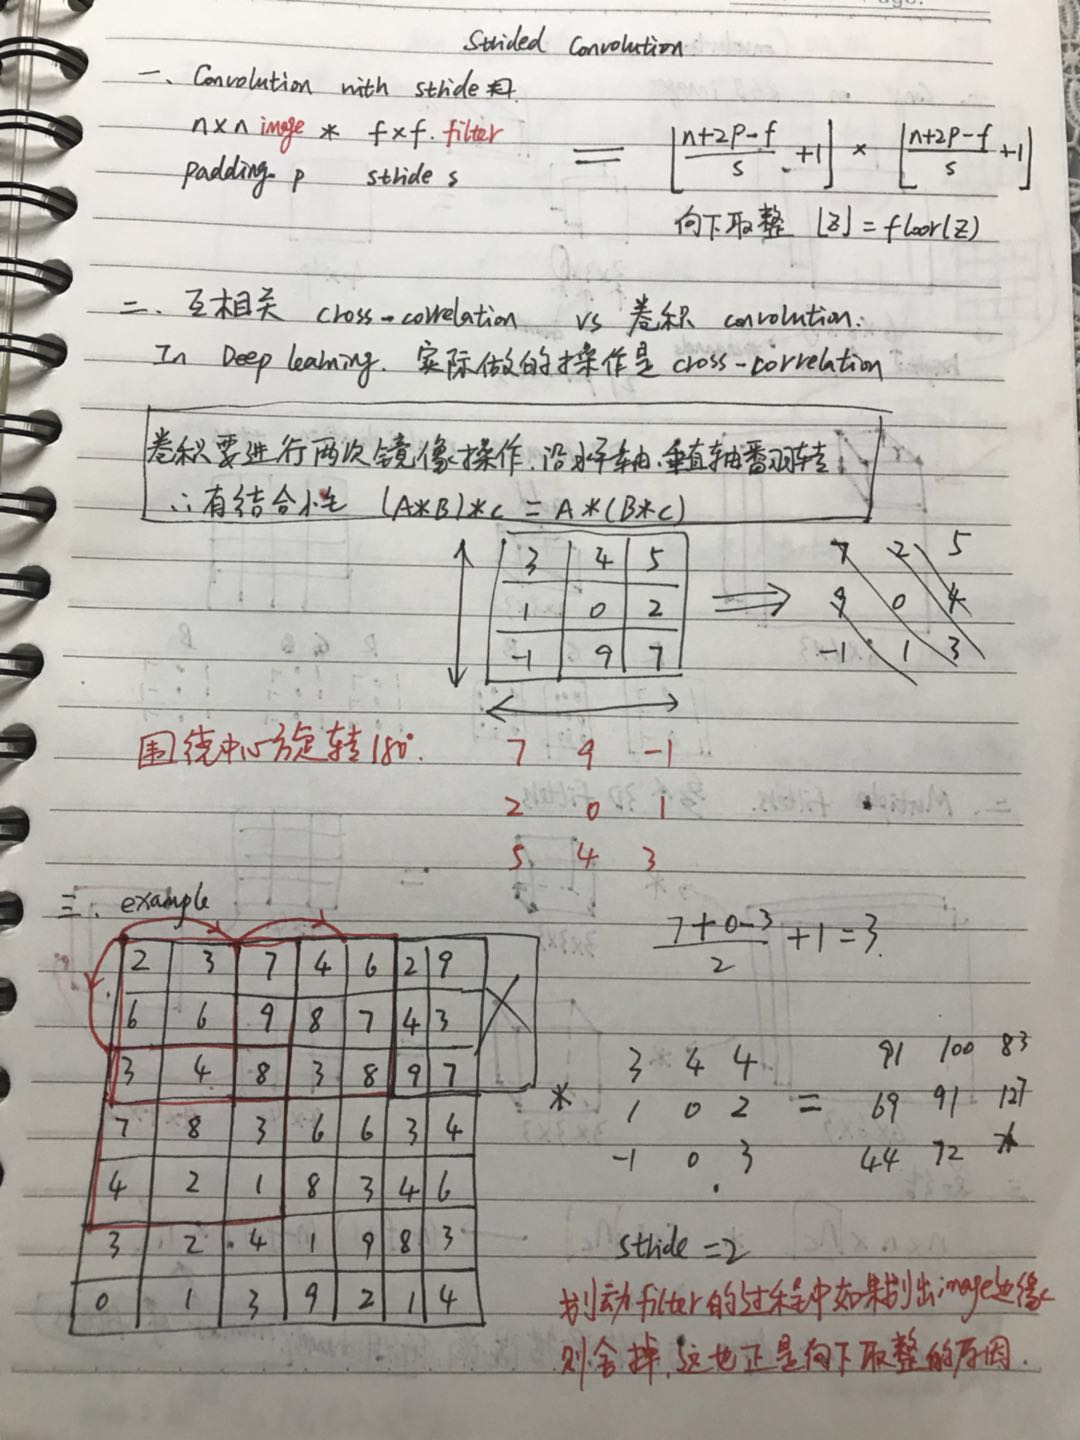 Strided Convolution
一、Convolution with stride
n×n image * f×f. filter
padding p stride s
= ⌊(n+2p-f)/s +1⌋ × ⌊(n+2p-f)/s +1⌋
向下取整 ⌊z⌋ = floor(z)
二、互相关 cross-correlation vs 卷积 convolution.
In Deep learning. 实际做的操作是 cross-correlation
卷积要进行两次镜像操作,沿水平轴、垂直轴翻转
∴有结合性 (A*B)*C = A*(B*C)
3 4 5 7 2 5
1 0 2 ⇒ 9 0 4
-1 9 7 -1 1 3
围绕中心旋转180°.
7 9 -1
2 0 1
5 4 3
三、example
(7+0-3)/2 +1=3
2 3 7 4 6 2 9
6 6 9 8 7 4 3
3 4 8 3 8 9 7
7 8 3 6 6 3 4
4 2 1 8 3 4 6
3 2 4 1 9 8 3
0 1 3 9 2 1 4
* 3 4 4 = 91 100 83
1 0 2 69 91 127
-1 0 3 44 72
stride = 2
划动filter的过程中如果划出image边缘
则舍掉,这也正是向下取整的原因.